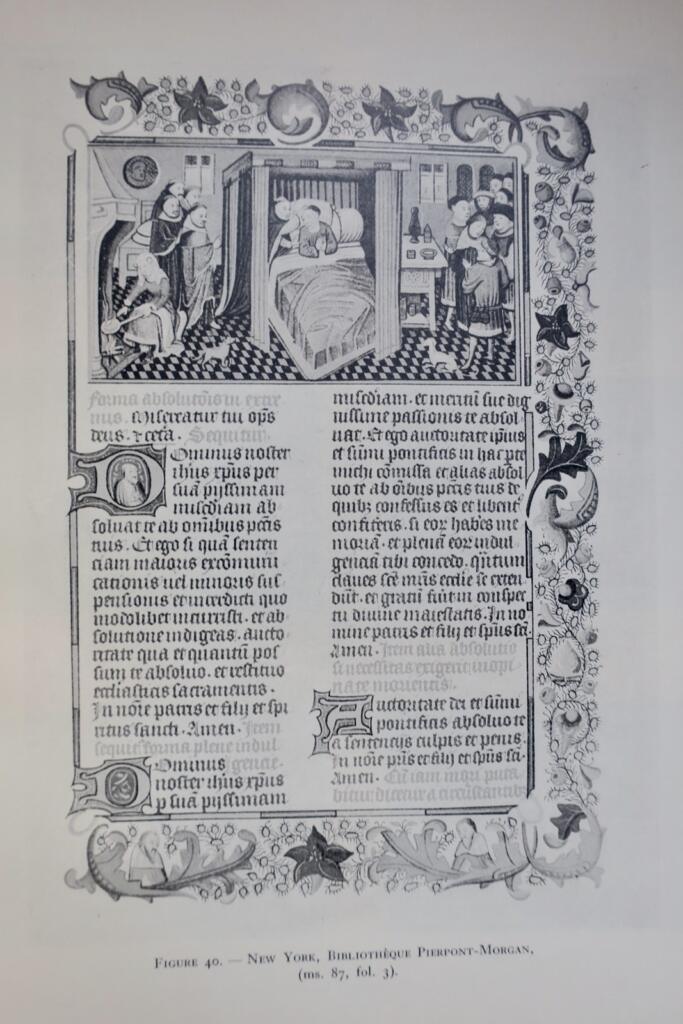 forma absolutōis in extre
mis. Misereatur tui op̄s
deus. ⁊ cetā. Sequitur
Ominus noster
ihūs xp̄us per
suā pijssimam
miẜcdiam ab
soluat te ab omībus pctīs
tuis. Et ego si quā senten
ciam maioris excōmuni
cationis uel minoris sus
pensionis et interdicti quo
modolibet incurristi. et ab
solutione indigeas. aucto
ritate qua et quantū pos
sum te absoluo. et restituo
ecclīasticis sacramentis.
In noīe patris et filij et spī
ritus sancti. Amen. Item
sequit' forma plene indul
Ominus gencie.
noster ihūs xp̄us
p suā pijssimam
misc̄diam. et meritū sue dig
nissime passionis te absol
uat. Et ego auctoritate ip̄ius
et sūmi pontificis in hac p̄te
michi cōmissa et alias absol
uo te ab oībus pctīs tuis de
quibȝ confessus es et libent̄
confiteris. si eoꝝ habēs me
moriā. et plenā eoꝝ indul
genciā tibi concedo. qn̄tum
claues scē mr̄is ecclīe se exten
dūt. et gratū fiūt in conspec
tu diuine maiestatis. In no
mine patris et filij et sp̄us scī.
Amen. Item alia absolutio
si necessitas exigerit inopi
nate morientis.
Auctoritate dei et sūmi
pontificis absoluo te
a sentencijs culpis et penis.
In noīe pr̄is et filij et sp̄us scī.
Amen. Cū iam mori puta
bitur dicetur a circūstantibꝰ
FIGURE 40. — NEW YORK, BIBLIOTHÈQUE PIERPONT-MORGAN,
(ms. 87, fol. 3).